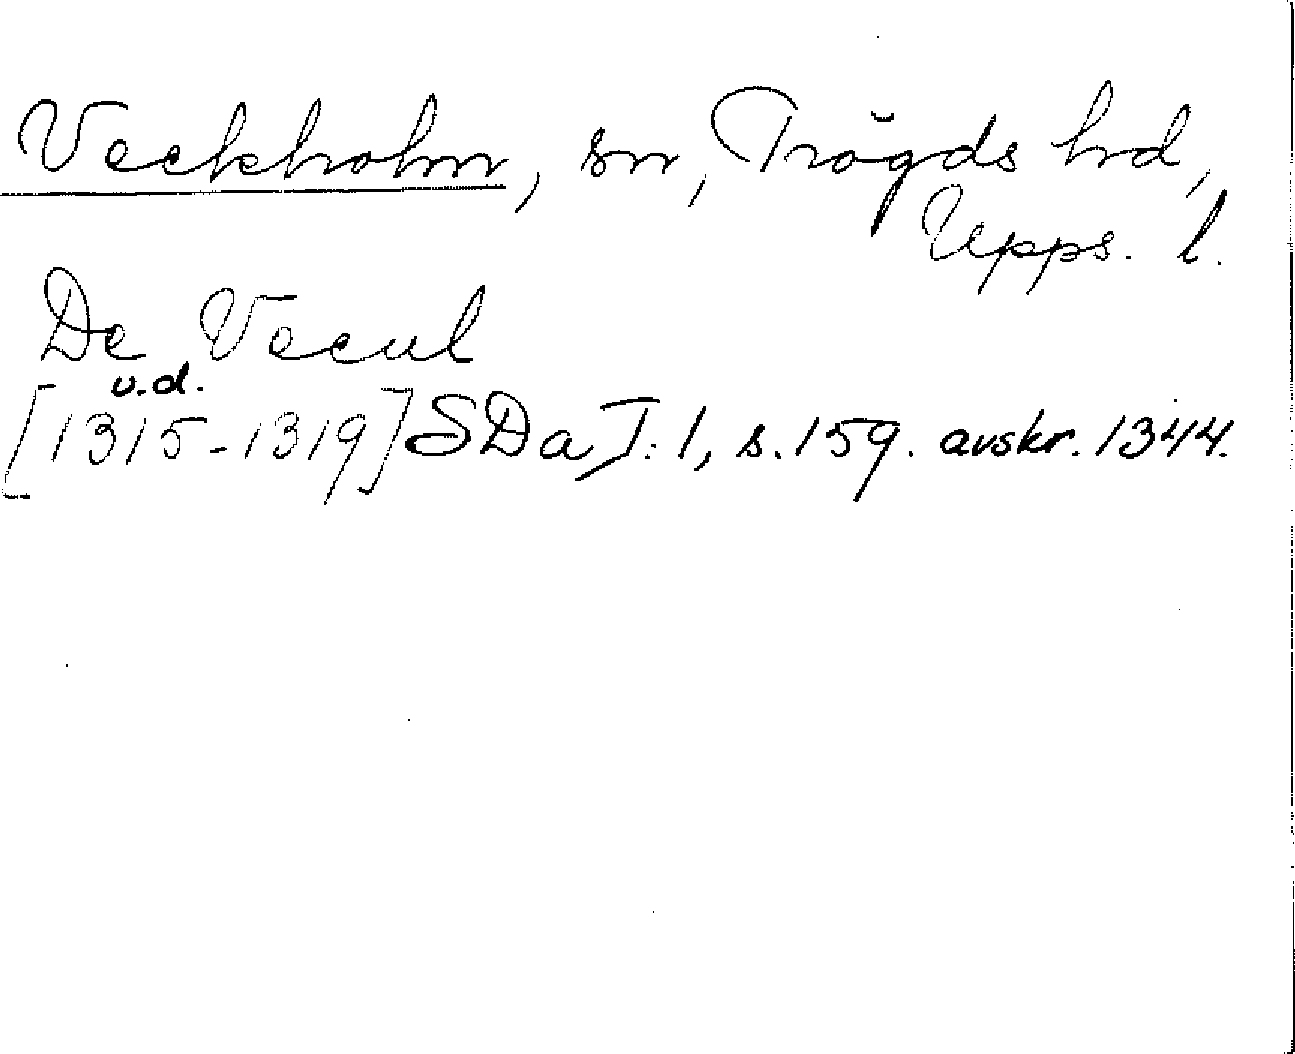 Veckholm, sn, Trögds hd,
Upps. l.
De Vecul
u.d.
[1315-1319] SDa I:1, s.159. avskr. 1344.